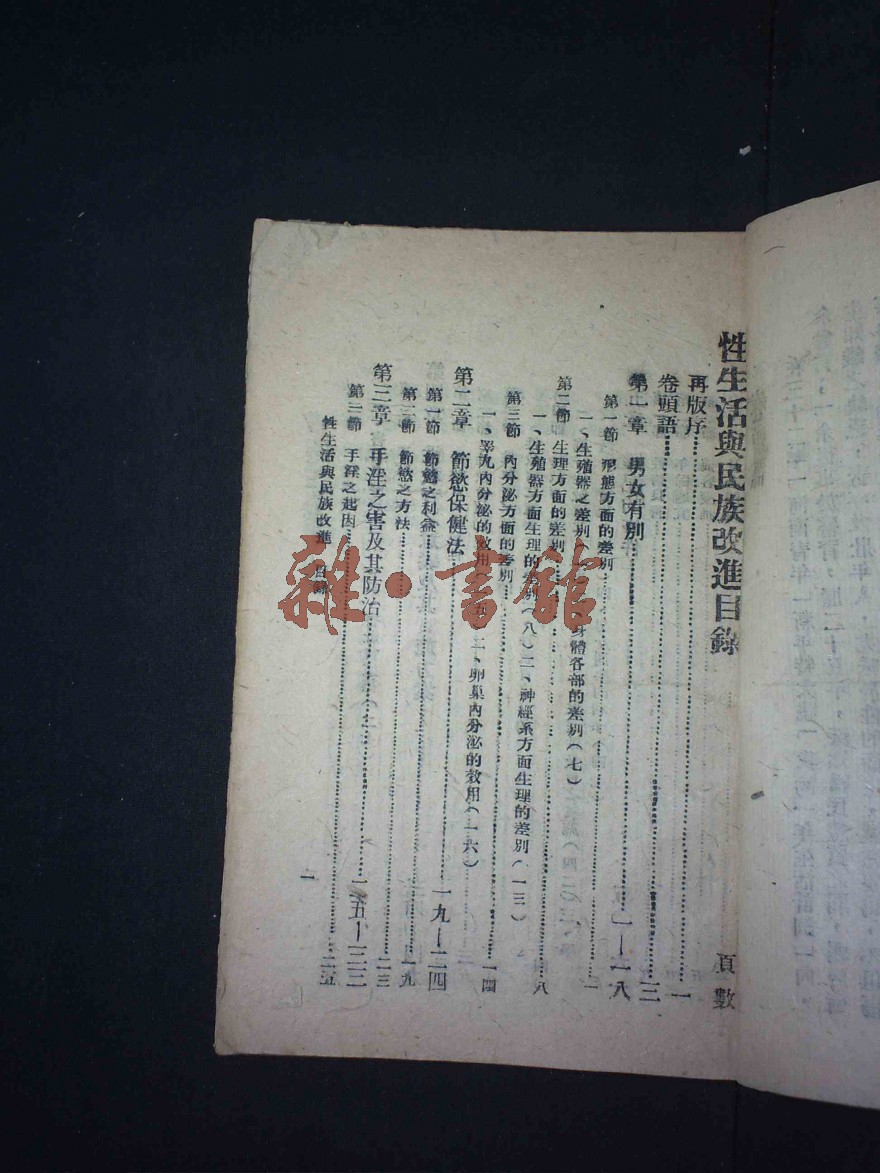 性生活與民族改進目錄 頁數
再版序 一
卷頭語 三
第一章 男女有別 一—一八
第一節 形態方面的差別 二
一、生殖器之差別 身體各部的差別(七)
第二節 生理方面的差別 八
一、生殖器方面生理的 (八)二、神經系方面生理的差別(一三)
第三節 內分泌方面的差別 一四
一、睪丸內分泌的效用 二、卵巢內分泌的效用(一六)
第二章 節慾保健法 一九—二四
第一節 節慾之利益 一九
第二節 節慾之方法 二三
第三章 手淫之害及其防治
第一節 手淫之起因 二五
性生活與民族改進 目錄
一
雜·書館